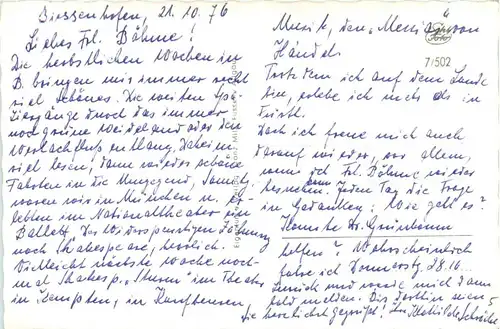 Biessenhofen, 21.10.76
Liebes Frl. Böhme!
Die herbstlichen Wochen in
B. bringen mir immer recht
viel Schönes. Die weiten Spa-
ziergänge durch das immer
noch grüne Weideland oder den
Wertachfluß entlang, daheim
viel lesen, dann wieder schöne
Fahrten in die Umgegend, Samst.
waren wir in München u. er-
lebten im Nationaltheater ein
Ballett, Der Widerspenstigen Zähmung
nach Shakespeare, herrlich.
Vielleicht nächste Woche noch-
mal Shakesp., "Sturm" im Theater
in Kempten, in Kaufbeuren,
Musik, den "Messias" von
Händel.
Trotzdem ich auf dem Lande
bin, erlebe ich mehr als in
Doch ich freue mich auch
darauf wieder, vor allem,
wenn ich Frl. Böhme wieder
sehen kann. Jeden Tag die Frage
in Gedanken: Wie geht es?
Konnte Dr. Grünbaum
helfen? Wahrscheinlich
fahre ich Donnerst. 28.10.
zurück und werde mich dann
bald melden. Bis dorthin seien
Sie herzlichst gegrüßt! Ihre Mathilde
7/502